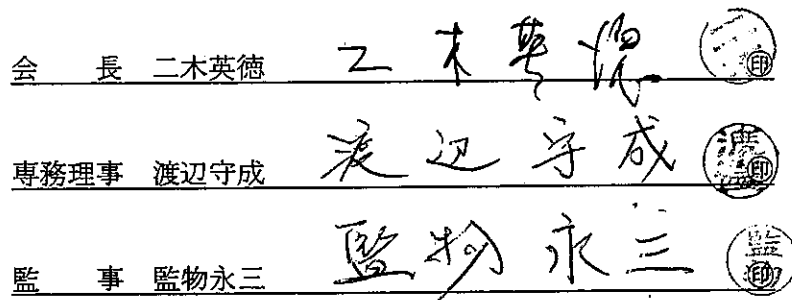 会長 二木英徳 二木英徳 印
専務理事 渡辺守成 渡辺守成 印
監事 監物永三 監物永三 監物 印